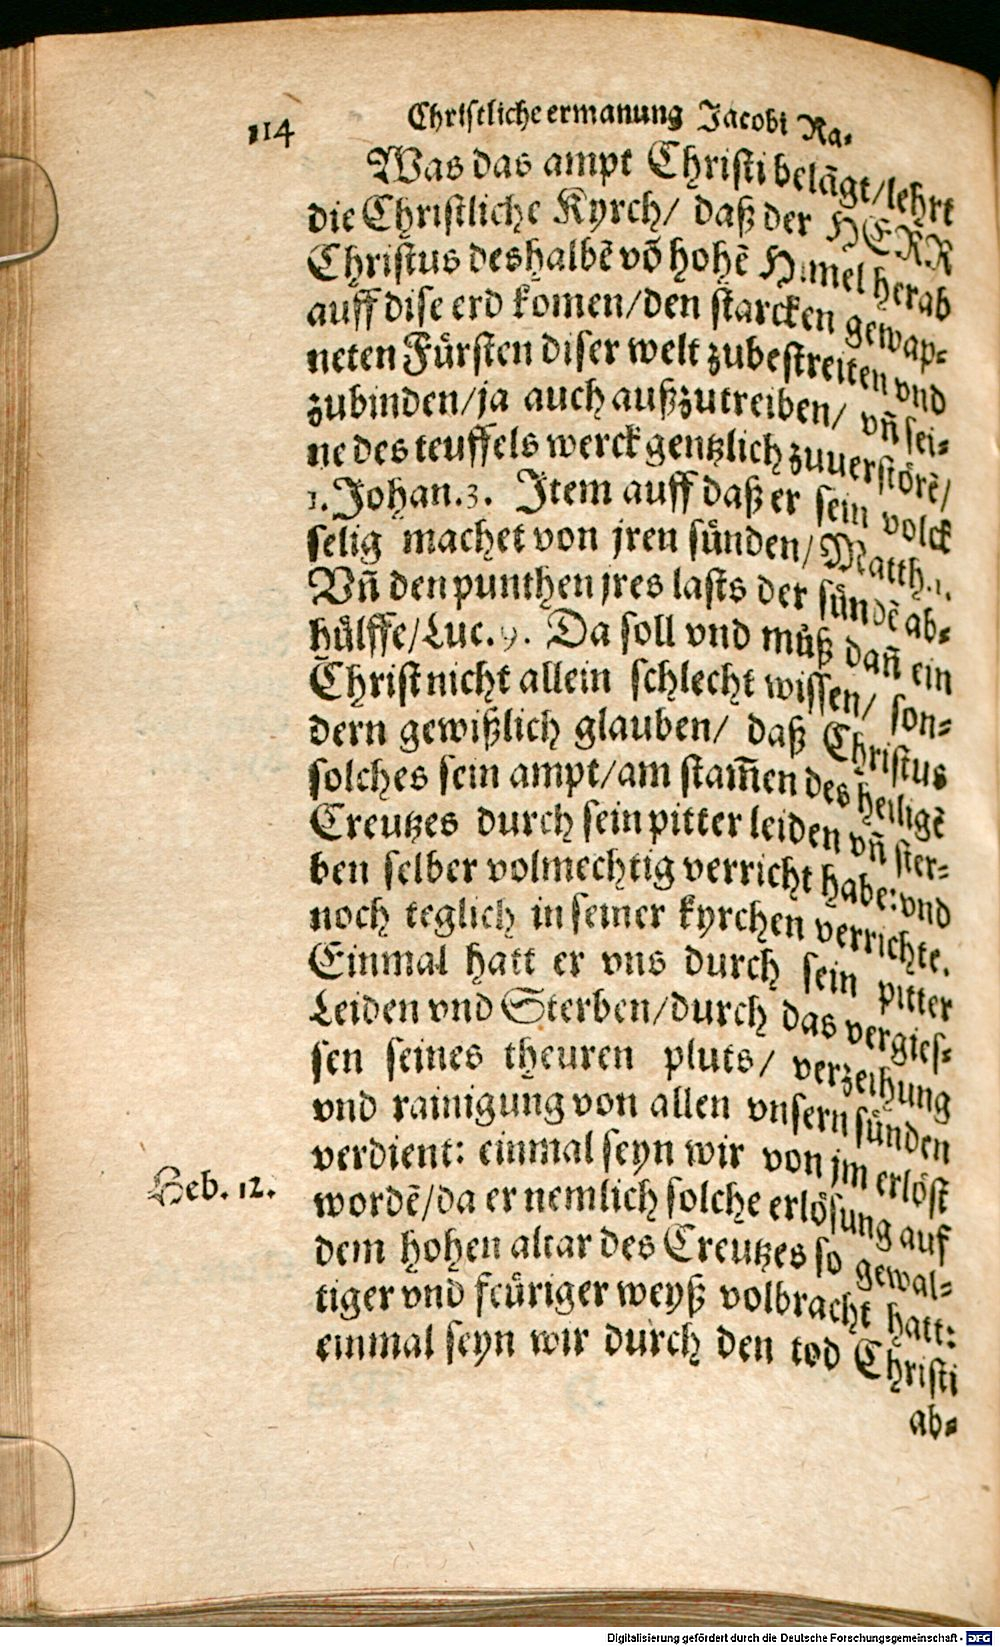 114 Christliche ermanung Jacobi Ra-
Was das ampt Christi belāgt/lehrt
die Christliche Kyrch/ daß der HERR
Christus deshalbē võ hohē Himel herab
auff dise erd komen/den starcken gewap-
neten Fürsten diser welt zubestreiten vnd
zubinden/ja auch außzutreiben/ vñ sei-
ne des teuffels werck gentzlich zuuerstörē/
1. Johan.3. Item auff daß er sein volck
selig machet von jren sünden/Matth.1.
Vñ den punthen jres lasts der sündē ab-
hülffe/Luc.9. Da soll vnd můß dañ ein
Christ nicht allein schlecht wissen/ son-
dern gewißlich glauben/ daß Christus
solches sein ampt/am stam̃en des heiligē
Creutzes durch sein pitter leiden vñ ster-
ben selber volmechtig verricht habe:vnd
noch teglich in seiner kyrchen verrichte.
Einmal hatt er vns durch sein pitter
Leiden vnd Sterben/durch das vergies-
sen seines theuren pluts/ verzeihung
vnd rainigung von allen vnsern sünden
verdient: einmal seyn wir von jm erlöst
Heb. 12. wordē/da er nemlich solche erlösung auf
dem hohen altar des Creutzes so gewal-
tiger vnd feüriger weyß volbracht hatt:
einmal seyn wir durch den tod Christi
ab-
Digitalisierung gefördert durch die Deutsche Forschungsgemeinschaft - DFG